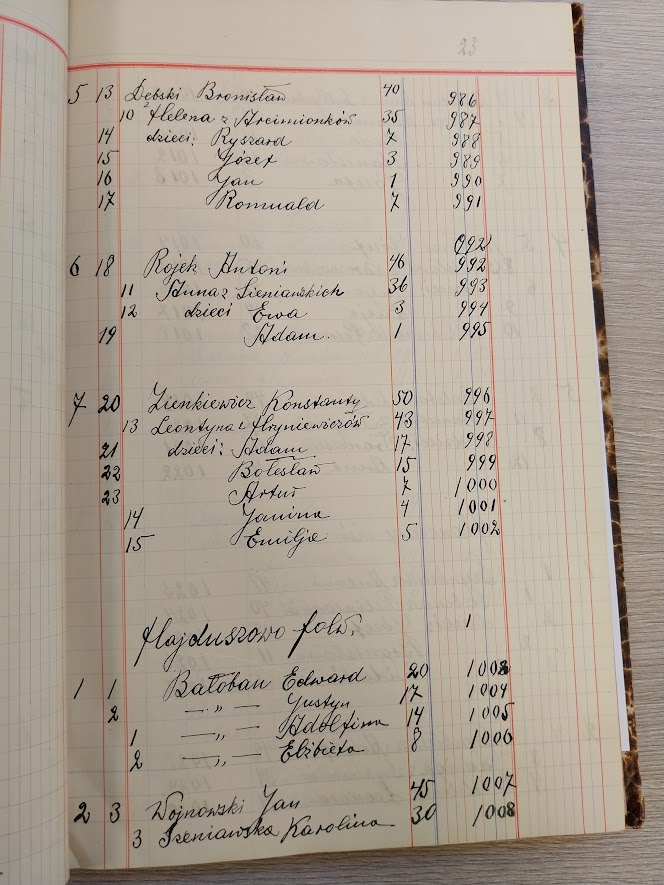 23
5 13 Dębski Bronisław 40 986
10 Helena z Arcimionków 35 987
14 dzieci: Ryszard 7 988
15 Józef 3 989
16 Jan 1 990
17 Romuald 7 991
992
6 18 Rojek Antoni 46 992
11 Anna z Sieniawskich 36 993
12 dzieci Ewa 3 994
19 Adam. 1 995
7 20 Zienkiewicz Konstanty 50 996
13 Leontyna z Hryniewiczów 43 997
21 dzieci: Adam 17 998
22 Bolesław 15 999
23 Artur 7 1000
14 Janina 4 1001
15 Emilja 5 1002
Hajduszowo folw. 1
1 1 Bałoban Edward 20 1003
2 — „ — Justyn 17 1004
1 — „ — Adolfina 14 1005
2 — „ — Elżbieta 8 1006
2 3 Wojnowski Jan 45 1007
3 Szeniawska Karolina 30 1008